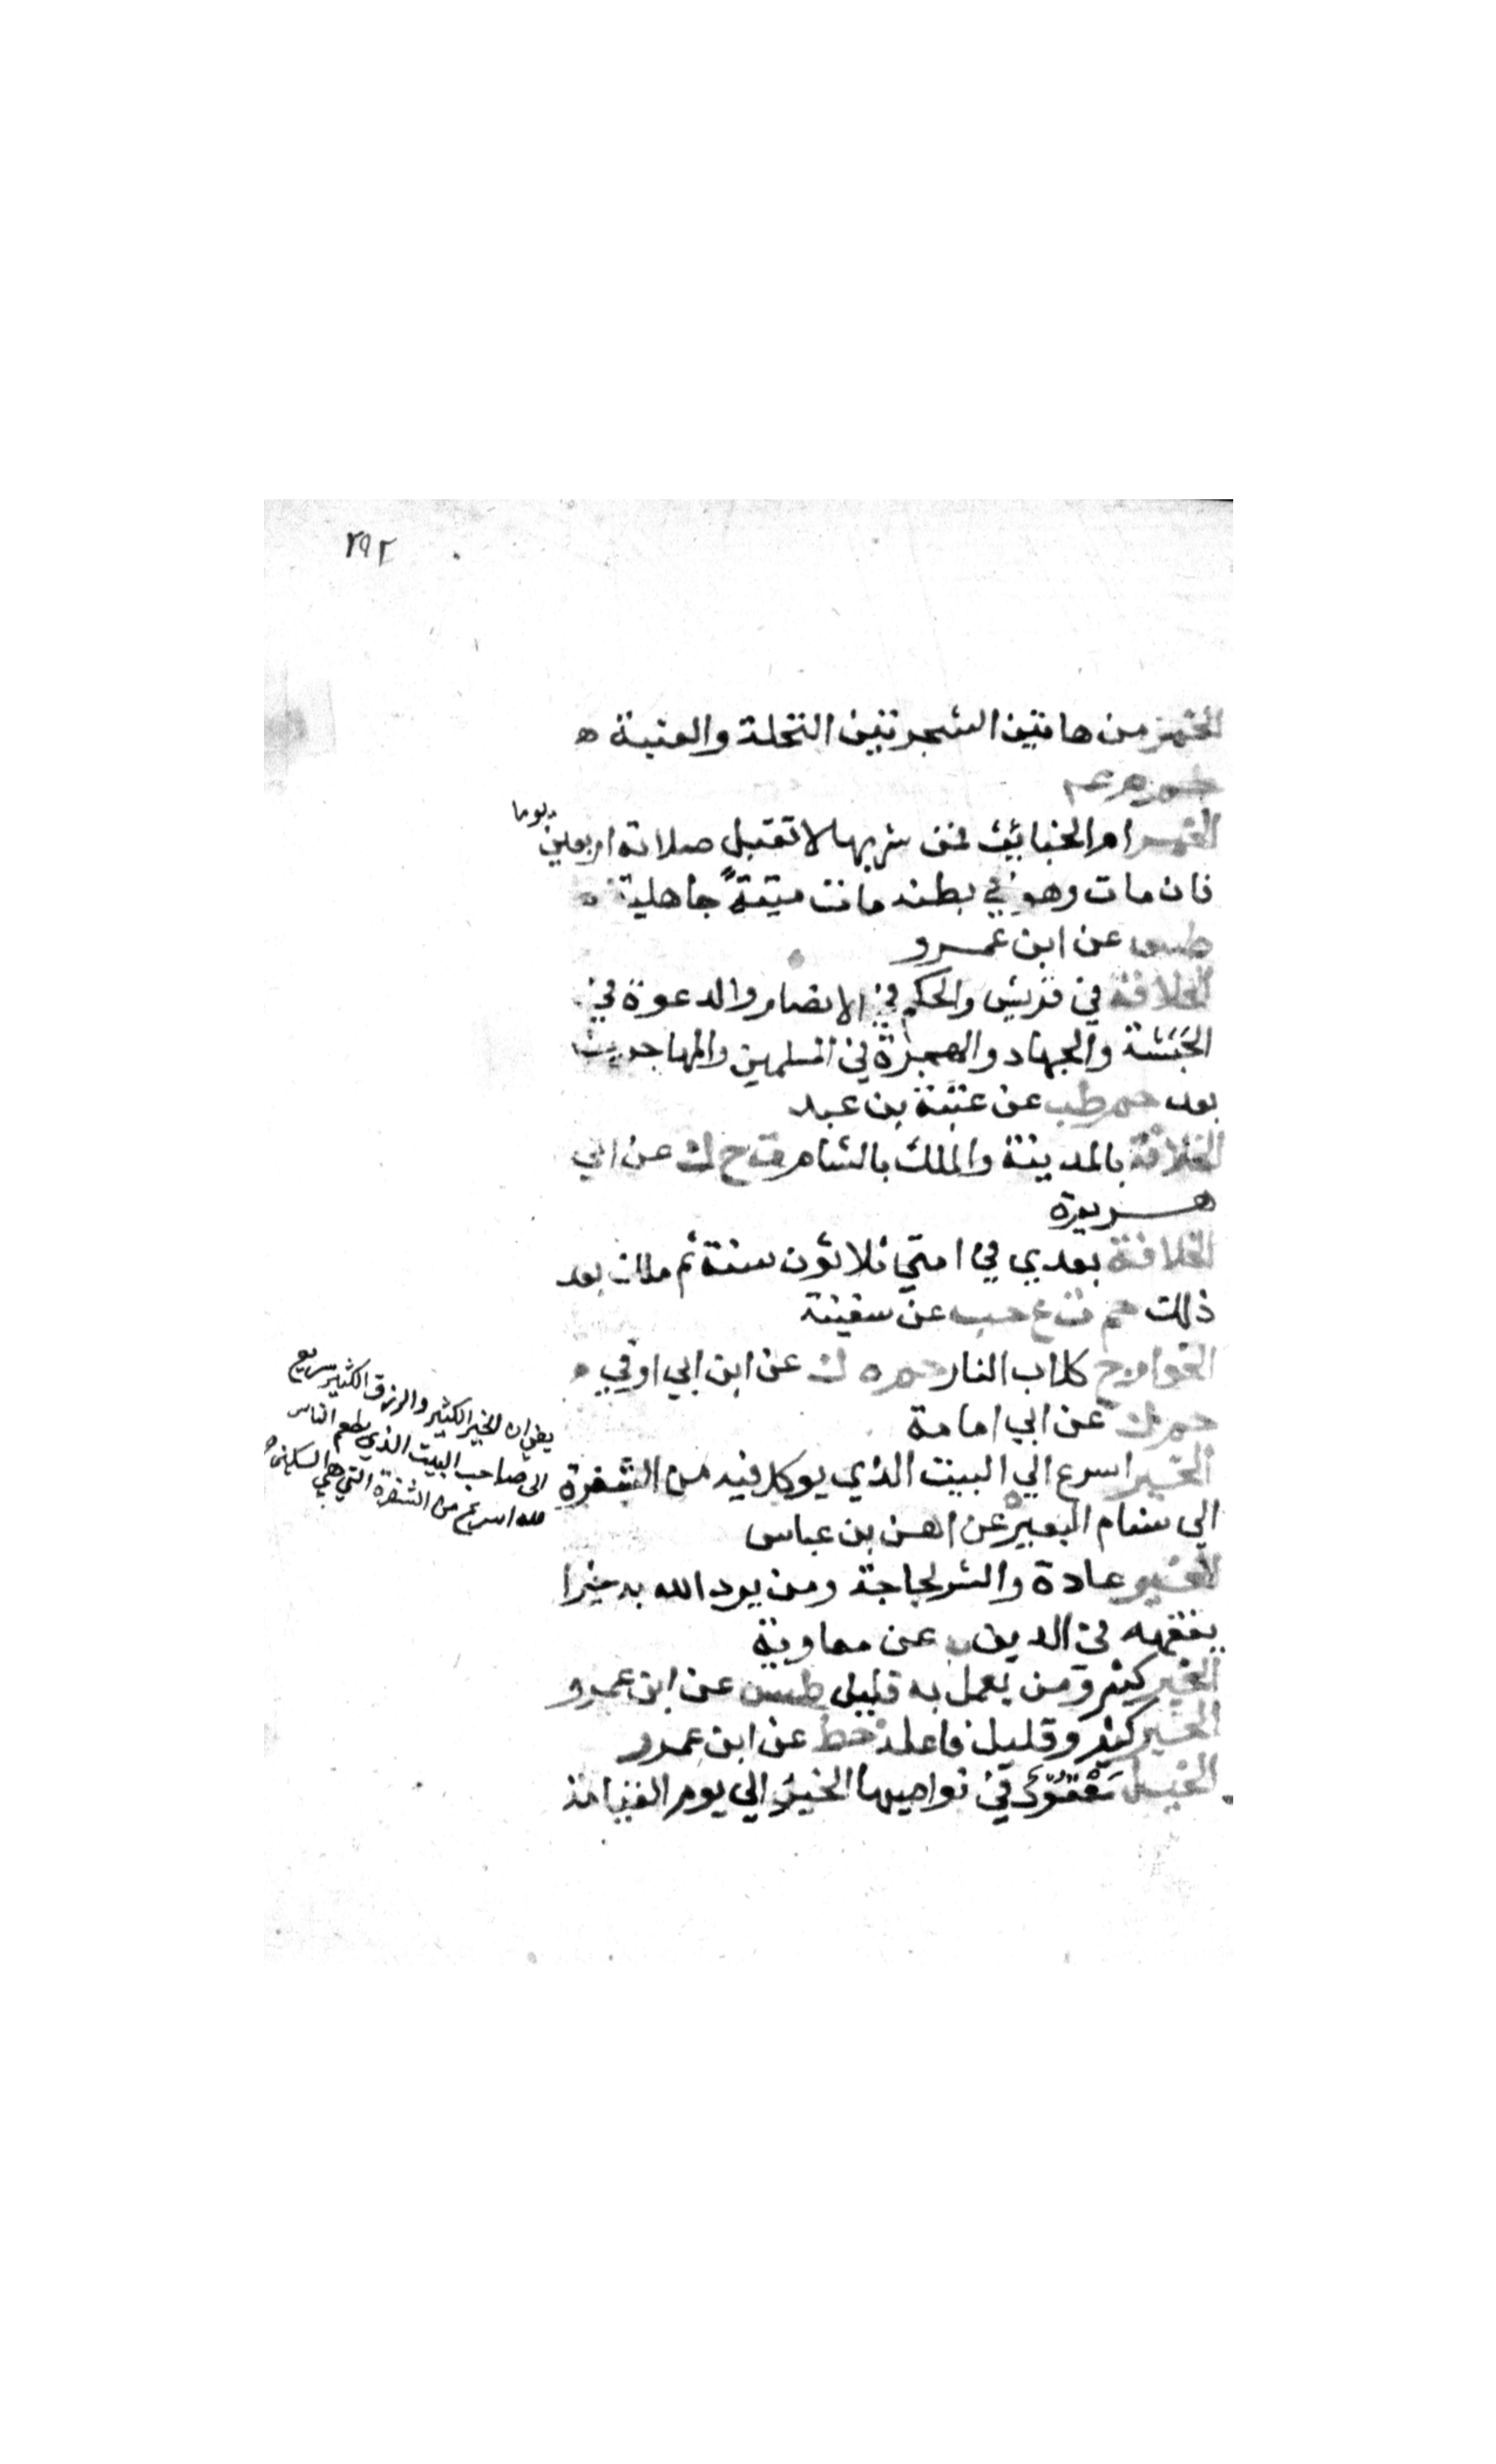 ٢٩٢
الخمر من هاتين الشجرتين النخلة والعنبة ه
حم م عم
الخمر ام الخبائث فمن شربها لا تقبل صلاته اربعين يوما
فان مات وهو في بطنه مات ميتةً جاهلية ه
طس عن ابن عمرو
الخلافة في قريش والحكم في الانصار والدعوة في
الحَبَشَة والجهاد والهجرة في المسلمين والمهاجرين
بعد حم طب عن عتبة بن عبد
الخلافة بالمدينة والملك بالشام تخ ك عن ابي
هريرة
الخلافة بعدي في امتي ثلاثون سنة ثم ملك بعد
ذلك حم ت ع حب عن سفينة
الخوارج كلاب النار حم ه ك عن ابن ابي اوفي ه
حم ك عن ابي امامة
الخير اسرع الي البيت الذي يوكل فيه من الشفرة
الي سنام البعير ه عن ابن عباس
الخير عادة والشر لجاجة ومن يرد الله به خيرا
يفقهه في الدين ه عن معاوية
الخير كثير ومن يعمل به قليل طس عن ابن عمرو
الخير كثير وقليل فاعله خط عن ابن عمرو
الخيل مَعْقُودٌ في نواصيها الخير الي يوم القيامة
يعني ان الخير الكثير والرزق الكثير سريع
الى صاحب البيت الذي يطعم الناس
لله اسرع من الشفرة التي هي السكين ه